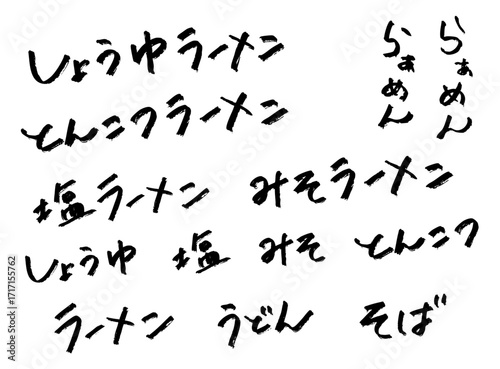 しょうゆラーメン
とんこつラーメン
塩ラーメン みそラーメン
しょうゆ 塩 みそ とんこつ
ラーメン うどん そば
らぁめん
らぁめん
Adobe Stock | #1717155762